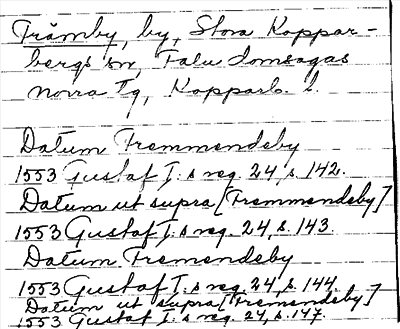 Främby, by, Stora Koppar-
bergs sn, Falu domsagas
norra tg, Kopparb. l.
Datum Fremmendeby
1553 Gustaf I:s reg. 24, s. 142.
Datum ut supra [Fremmendeby]
1553 Gustaf I:s reg. 24, s. 143.
Datum Fremendeby
1553 Gustaf I:s reg. 24, s. 144.
Datum ut supra [Fremendeby]
1553 Gustaf I:s reg. 24, s. 147.